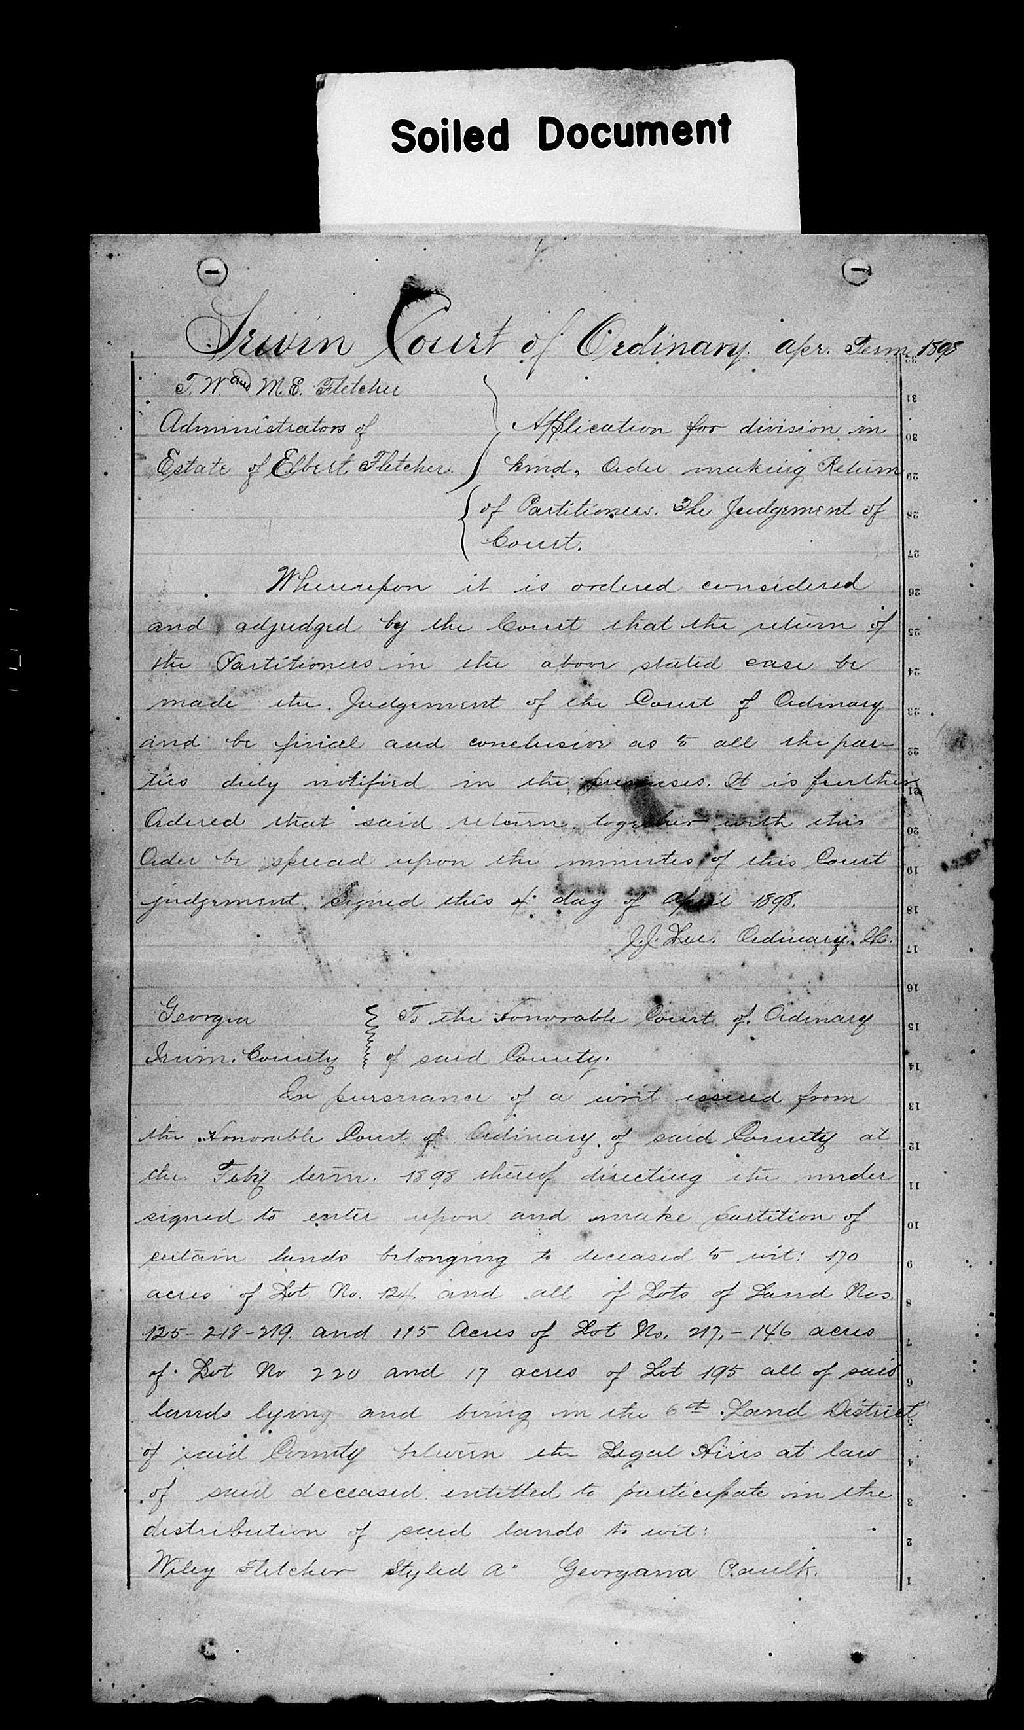 Soiled Document
Irwin Court of Ordinary. Apr. Term 1898
T. W. and M. E. Fletcher
Administrators of
Estate of Elbert Fletcher
Application for division in
kind, Order making Return
of Partitioners. The Judgement of
Court.
Whereupon it is ordered considered
and adjudged by the Court that the return of
the Partitioners in the above stated case be
made the Judgement of the Court of Ordinary
and be final and conclusive as to all the par-
ties duly notified in the premises. It is further
Ordered that said return together with this
Order be spread upon the minutes of this Court
judgement signed this 4 day of April 1898.
J. J. Ordinary. I.C.
Georgia
Irwin County
To the Honorable Court of Ordinary
of said County.
In pursurance of a writ issued from
the Honorable Court of Ordinary of said County at
the Feby term. 1898 thereof directing the under
signed to enter upon and make partition of
certain lands belonging to deceased to wit: 170
acres of Lot No. 124 and all of Lots of Land Nos.
125-218-219. and 115 Acres of Lot No. 217.- 146 acres
of Lot No 220 and 17 acres of Lot 195 all of said
lands lying and being in the 6th Land District
of said County between the Legal Hires at law
of said deceased entitled to participate in the
distribution of said lands to wit:
Wiley Fletcher Styled A. Georgiana Paulk.
31
30
29
28
27
26
25
24
23
22
21
20
19
18
17
16
15
14
13
12
11
10
9
8
7
6
5
4
3
2
1